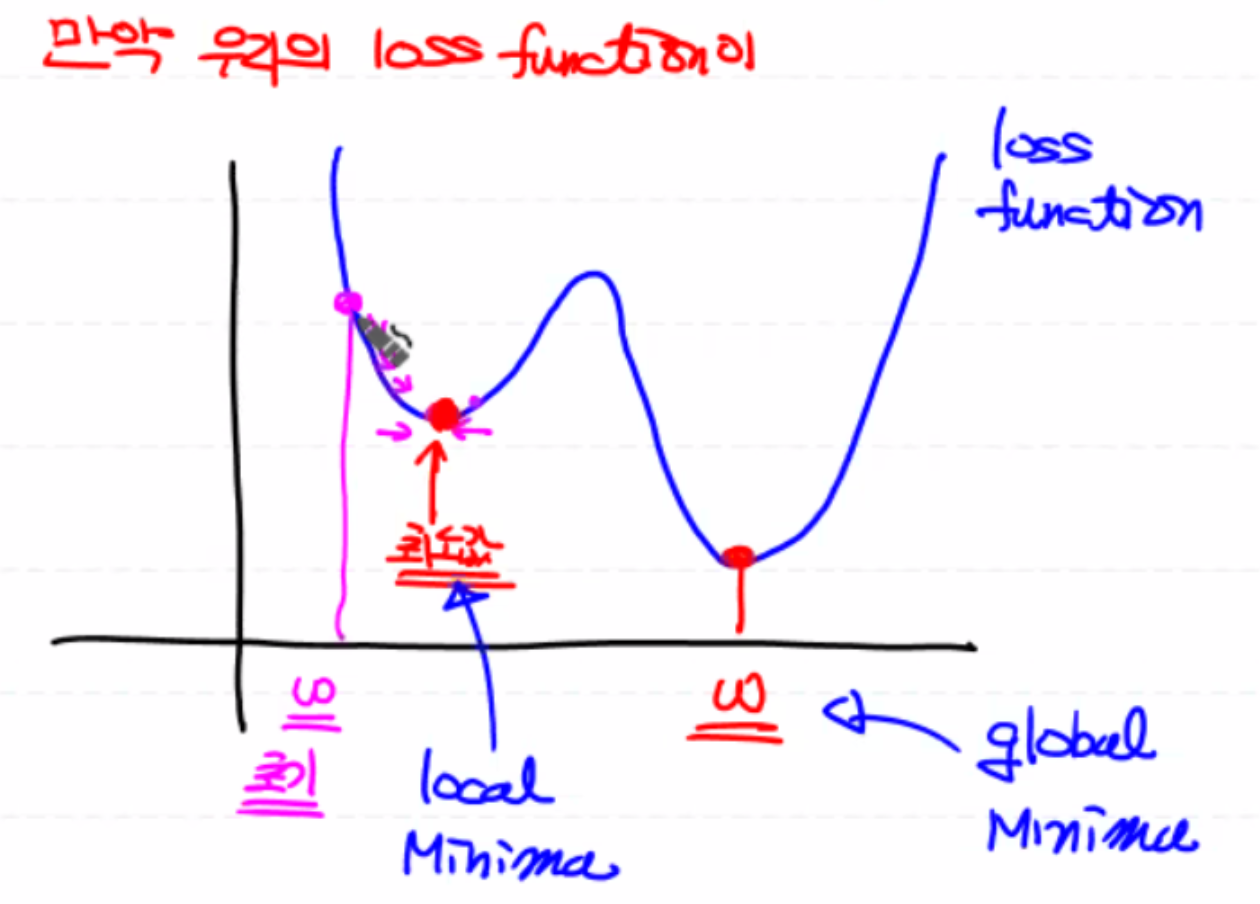 만약 우리의 loss function이
loss
function
최소값
ω
초기
ω
local
Minima
global
Minima